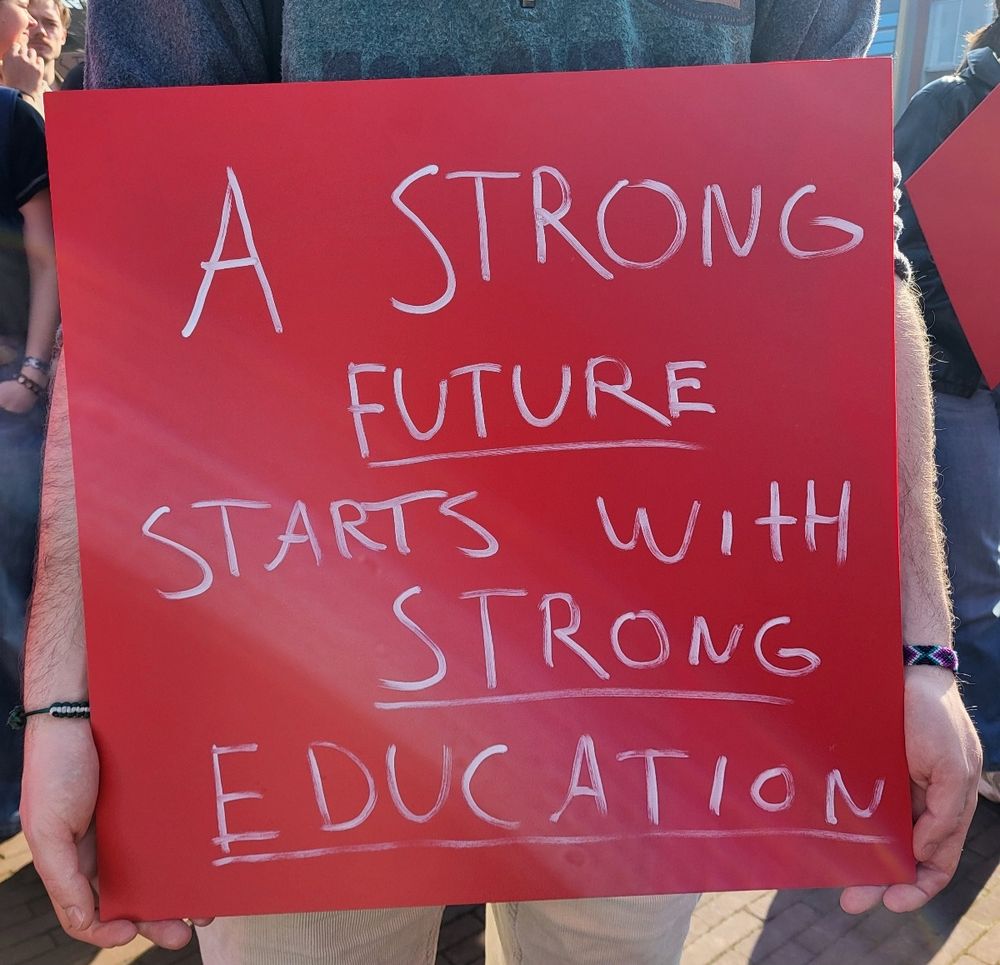 A STRONG
FUTURE
STARTS WITH
STRONG
EDUCATION